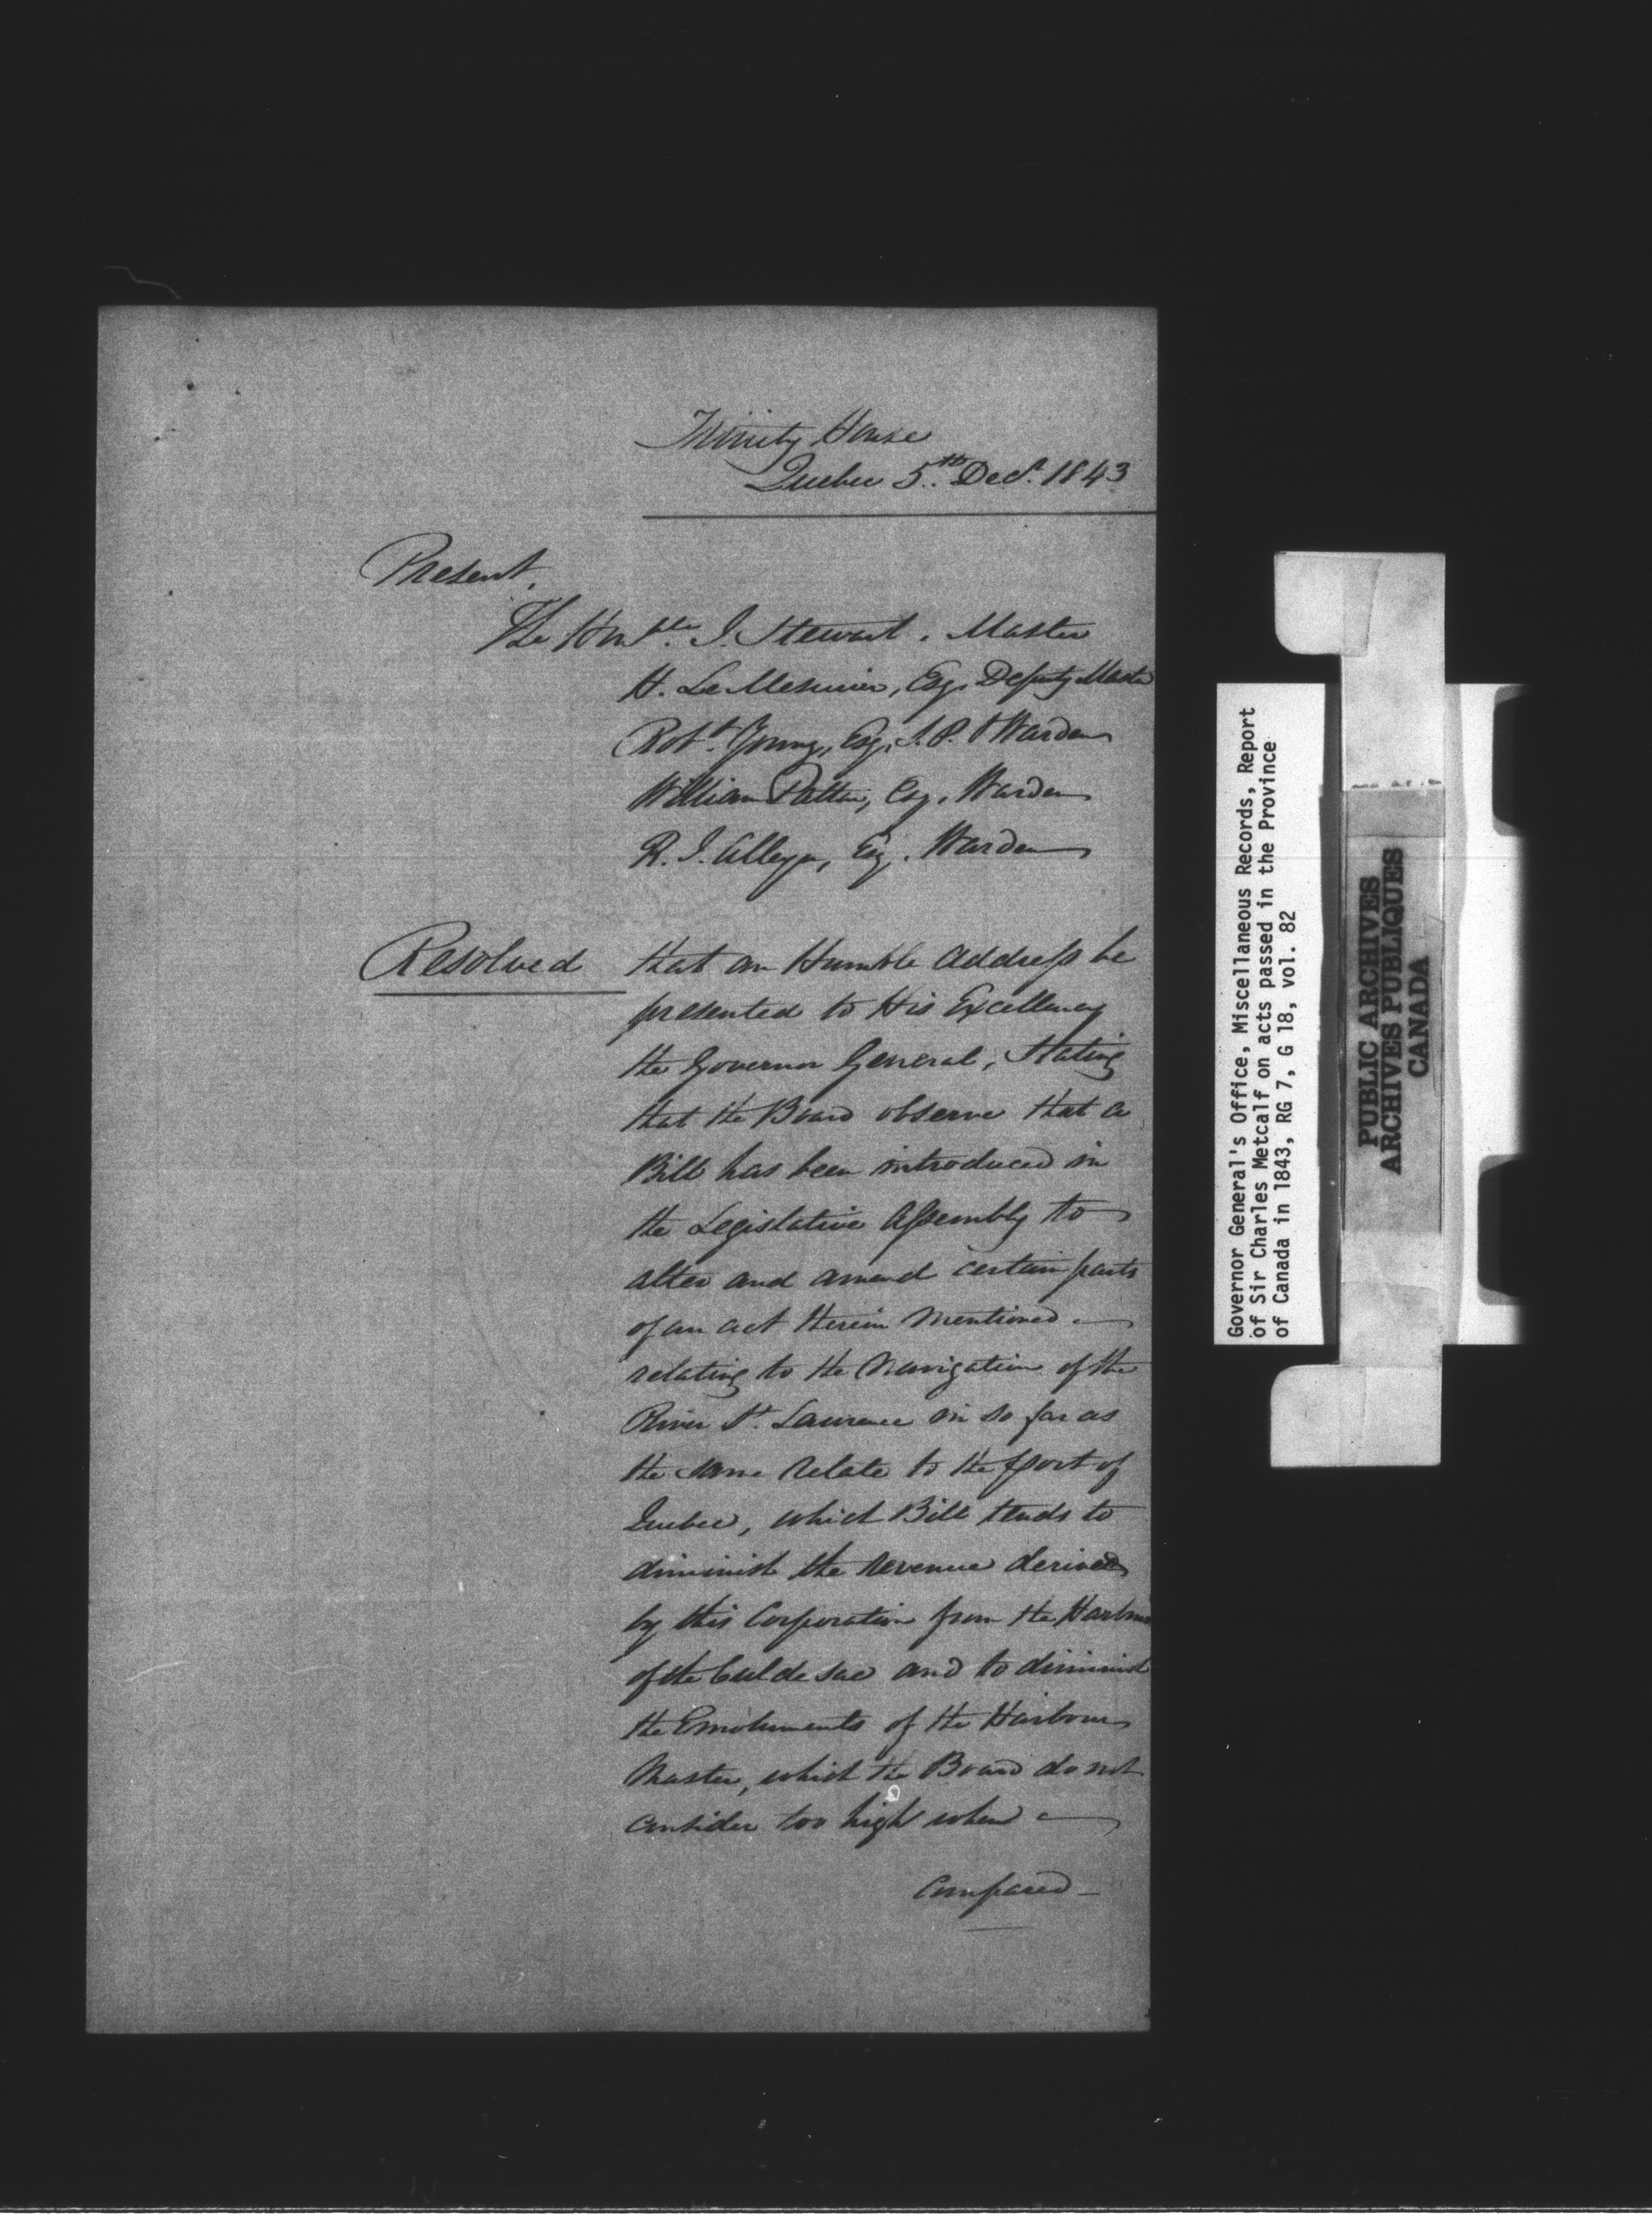 Trinity House
Quebec 5th Decr. 1843
Present,
The Honble. J. Stewart. Master
H. LeMesurier, Esq. Deputy Master
Robt. Young, Esq. Warden
William Patton, Esq. Warden
R. J. Alleyn, Esq. Warden
Resolved that an Humble Address be
presented to His Excellency
the Governor General, Stating
that the Board observe that a
Bill has been introduced in
the Legislative Assembly to
alter and amend certain parts
of an act therein mentioned
relating to the Navigation of the
River St. Lawrence in so far as
the same relate to the port of
Quebec, which Bill tends to
diminish the Revenue derived
by this Corporation from the Harbour
of the Cul de sac and to diminish
the Emoluments of the Harbour
Master, which the Board do not
consider too high when
Compared
Governor General's Office, Miscellaneous Records, Report
of Sir Charles Metcalf on acts passed in the Province
of Canada in 1843, RG 7, G 18, vol. 82
PUBLIC ARCHIVES
ARCHIVES PUBLIQUES
CANADA